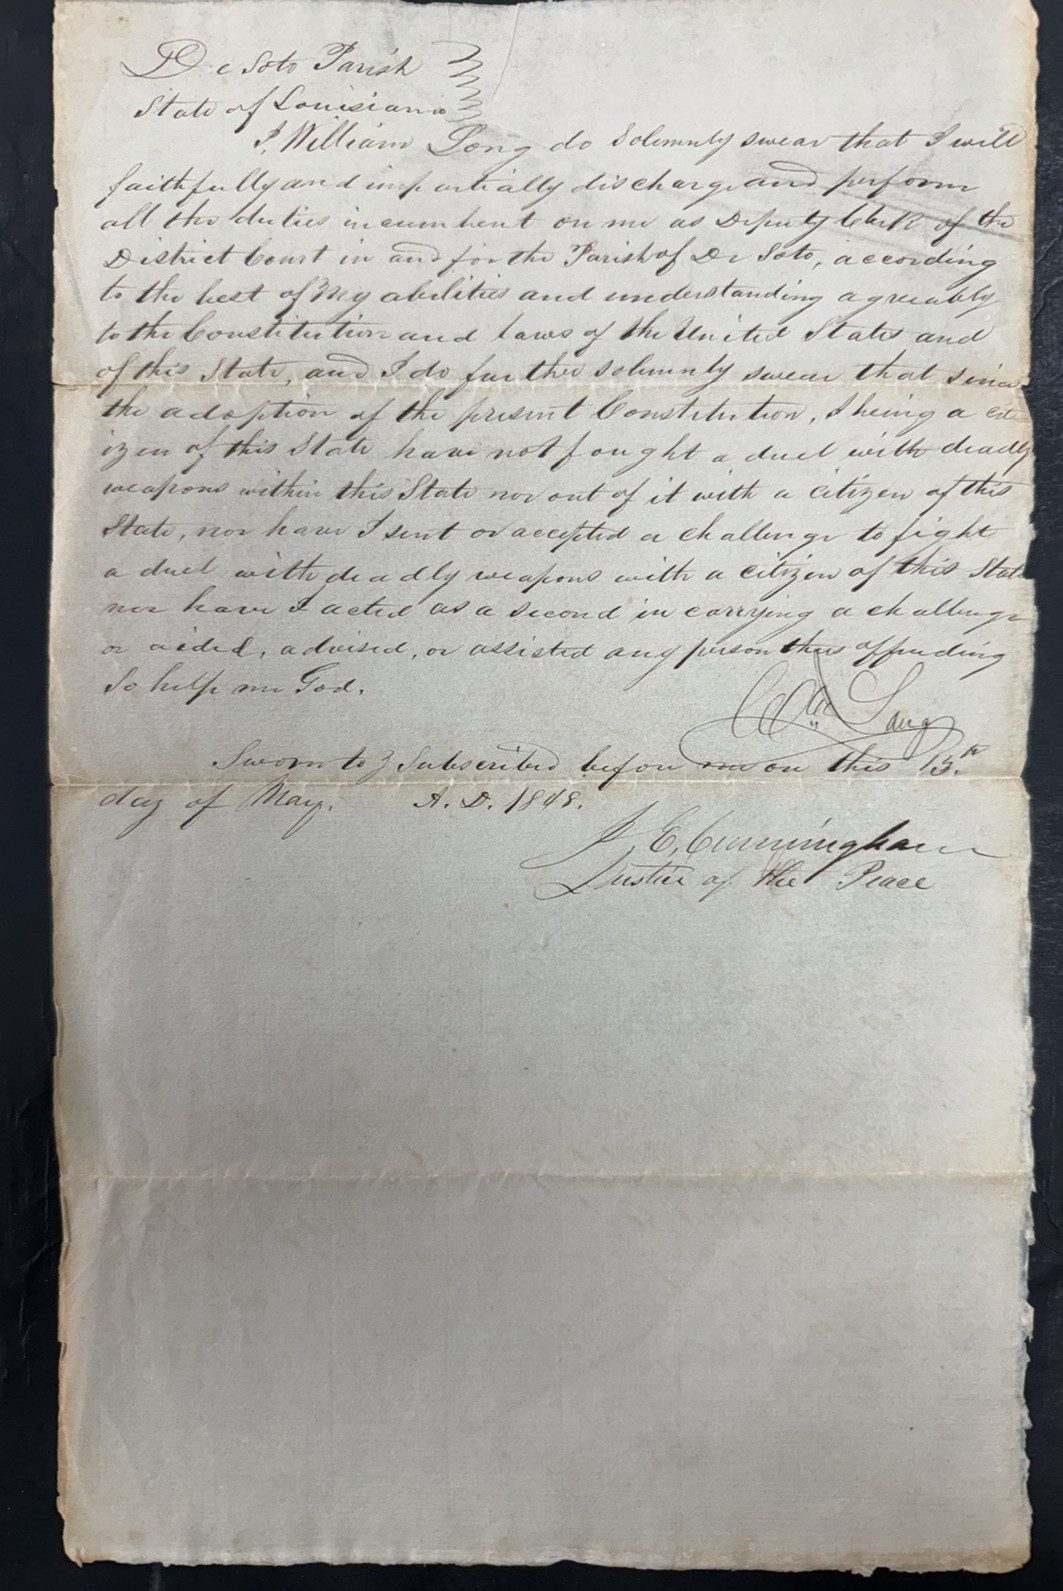 De Soto Parish
State of Louisiana
I, William Long do Solemnly swear that I will
faithfully and impartially discharge and perform
all the duties incumbent on me as Deputy Clerk of the
District Court in and for the Parish of De Soto, according
to the best of My abilities and understanding agreeably
to the Constitution and laws of the United States and
of this State, and I do further solemnly swear that since
the adoption of the present Constitution, I being a cit
izen of this State have not fought a duel with deadly
weapons within this State nor out of it with a citizen of this
State, nor have I sent or accepted a challenge to fight
a duel with deadly weapons with a citizen of this State
nor have I acted as a second in carrying a challenge
or aided, advised, or assisted any person thus offending
So help me God.
Wm Long
Sworn to & Subscribed before me on this 13.th
day of May. A. D. 1848.
J. E. Cunningham
Justice of the Peace